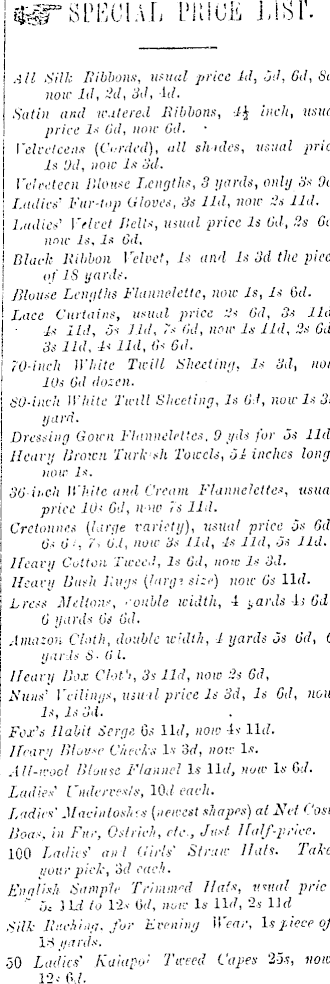 SPECIAL PRICE LIST.
All Silk Ribbons, usual price 4d, 5d, 6d, 8d
now 1d, 2d, 3d, 4d.
Satin and watered Ribbons, 4½ inch, usu
price 1s 6d, now 6d.
Velveteens (Corded), all shades, usual pric
1s 9d, now 1s 3d.
Velveteen Blouse Lengths, 3 yards, only 3s 9d
Ladies' Fur-top Gloves, 3s 11d, now 2s 11d.
Ladies' Velvet Belts, usual price 1s 6d, 2s 6d
now 1s, 1s 6d.
Black Ribbon Velvet, 1s and 1s 3d the piec
of 18 yards.
Blouse Lengths Flannelette, now 1s, 1s 6d.
Lace Curtains, usual price 2s 6d, 3s 11d
4s 11d, 5s 11d, 7s 6d, now 1s 11d, 2s 6d
3s 11d, 4s 11d, 6s 6d.
70-inch White Twill Sheeting, 1s 3d, no
10s 6d dozen.
80-inch White Twill Sheeting, 1s 6d, now 1s 3
yard.
Dressing Gown Flannelettes, 9 yds for 5s 11d
Heavy Brown Turkish Towels, 54 inches long
now 1s.
36-inch White and Cream Flannelettes, usua
price 10s 6d, now 7s 11d.
Cretonnes (large variety), usual price 5s 6d
6s 6d, 7s 6d, now 3s 11d, 4s 11d, 5s 11d.
Heavy Cotton Tweed, 1s 6d, now 1s 3d.
Heavy Bush Rugs (large size) now 6s 11d.
Dress Meltons, double width, 4 yards 4s 6d
6 yards 6s 6d.
Amazon Cloth, double width, 4 yards 5s 6d, 6
yards 8s 6d.
Heavy Box Cloth, 3s 11d, now 2s 6d,
Nuns' Veilings, usual price 1s 3d, 1s 6d, now
1s, 1s 3d.
Fox's Habit Serge 6s 11d, now 4s 11d.
Heavy Blouse Checks 1s 3d, now 1s.
All-wool Blouse Flannel 1s 11d, now 1s 6d.
Ladies' Undervests, 10d each.
Ladies' Macintoshes (newest shapes) at Net Cost
Boas, in Fur, Ostrich, etc., Just Half-price.
100 Ladies' and Girls' Straw Hats. Take
your pick, 3d each.
English Sample Trimmed Hats, usual pric
5s 11d to 12s 6d, now 1s 11d, 2s 11d
Silk Ruching, for Evening Wear, 1s piece of
18 yards.
50 Ladies' Kaiapoi Tweed Capes 25s, now
12s 6d.